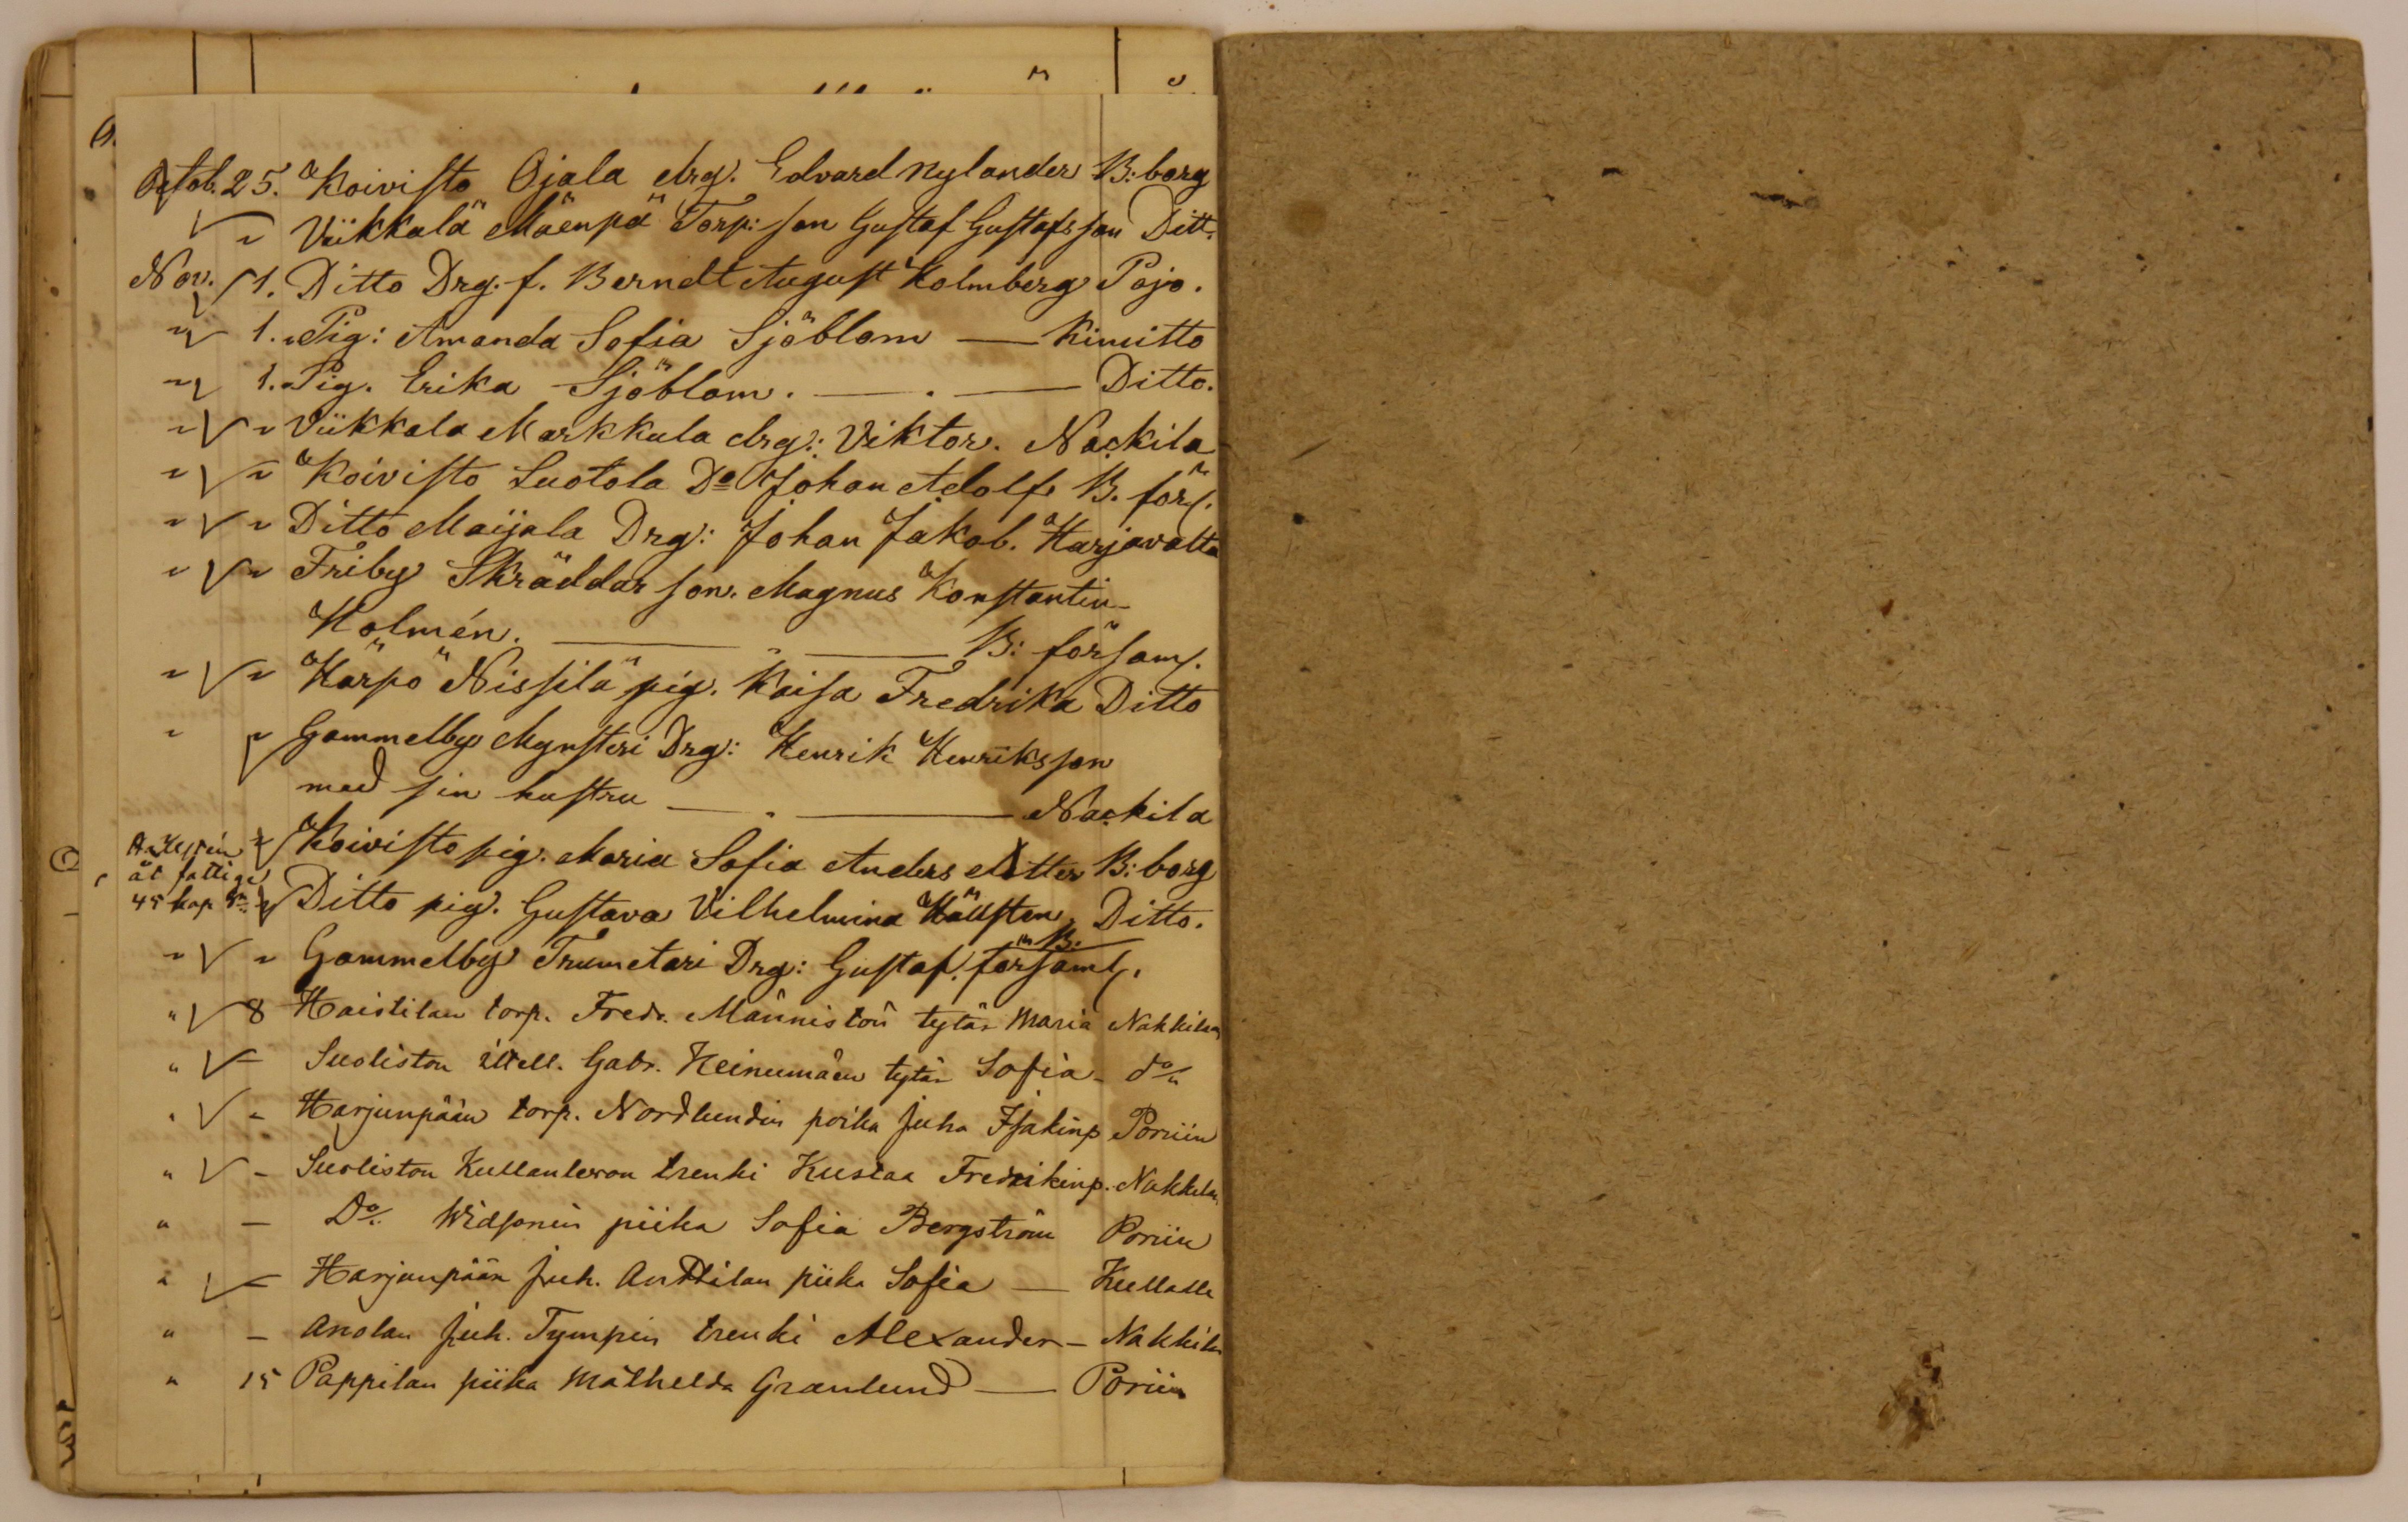 Octob. 25. Koivisto Ojala drg. Edvard Nylander B:borg
" Viikkala Mäenpä Torp: son Gustaf Gustafsson Ditt.
Nov. 1. Ditto Drg. f. Berndt August Holmberg Pojo.
" 1. Pig: Amanda Sofia Sjöblom — Kimitto
" 1. Pig. Erika Sjöblom. — . — Ditto.
" " Viikkala Markkula drg: Viktor. Nackila
" " Koivisto Suotola Do Johan Adolf B. förs.
" " Ditto Maijala Drg: Johan Jakob. Harjavalta
" " Friby Skräddar son. Magnus Konstantin
Holmén. — " — B: församl.
" " Härpö Nissilä pig. Kaisa Fredrika Ditto
" " Gammelby Mynsteri Drg: Henrik Henriksson
med sin hustru — " — Nackila
" Koivisto pig. Maria Sofia Anders dotter B:borg
åt fattige
45 kop
Ditto pig. Gustava Vilhelmina Hällsten Ditto.
" " Gammelby Trumetari Drg: Gustaf. B. församl.
" 8 Haistilan torp. Fredr. Männistön tytär Maria Nakkilaan
" – Suoliston ittell. Gabr. Heinumäen tytär Sofia – do
" – Harjunpään torp. Nordlundin poika Juha Isakinp Poriin
" – Suoliston Kullanleron trenki Kustaa Fredrikinp. Nakkilaan
" – Do piika Sofia Bergström Poriin
" – Harjunpään Juh. Anttilan piika Sofia — Kullalle
" – Anolan Juh. Tympin trenki Alexander – Nakkilaan
" 15 Pappilan piika Mathelda Granlund — Poriin